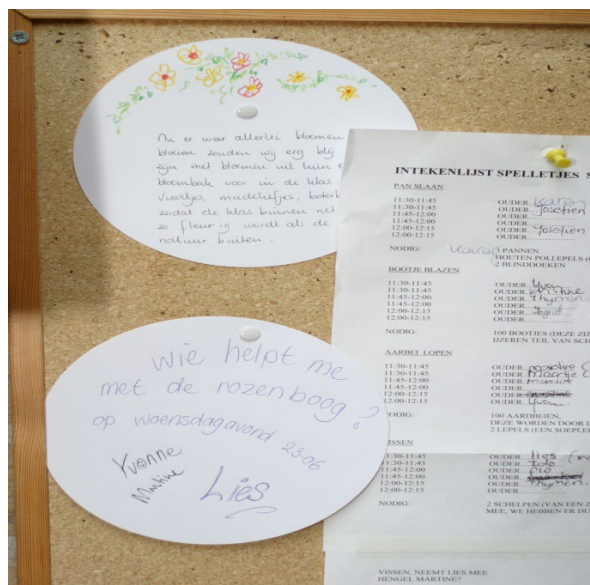 Nu er weer allerlei bloemen
bloeien zouden wij erg blij
zijn met bloemen uit tuin
bloembak voor in de klas
viooltjes, madeliefjes,
zodat de klas binnen net
zo fleurig wordt als de
natuur buiten.
wie helpt me
met de rozenboog?
op woensdagavond 23.06
Yvonne
Martine
Lies
INTEKENLIJST SPELLETJES S
PAN SLAAN
11:30-11:45 OUDER Karen
11:30-11:45 OUDER Josefien
11:45-12:00 OUDER
12:00-12:15 OUDER Josefien
12:00-12:15 OUDER
NODIG: PANNEN
HOUTEN POLLEPELS (
2 BLINDDOEKEN
BOOTJE BLAZEN
11:30-11:45 OUDER Yvon
11:30-11:45 OUDER Kristine
11:45-12:00 OUDER Thymen
11:45-12:00 OUDER
12:00-12:15 OUDER Ingrid
12:00-12:15 OUDER
NODIG: 100 BOOTJES (DEZE ZIJ
IJZEREN TEIL VAN SCH
AARBEI LOPEN
11:30-11:45 OUDER
11:30-11:45 OUDER Maartje
11:45-12:00 OUDER
12:00-12:15 OUDER
12:00-12:15 OUDER Yvon
NODIG: 100 AARDBEIEN.
DEZE WORDEN DOOR
2 LEPELS (EEN SOEPLE
VISSEN
11:30-11:45 OUDER lies
11:30-11:45 OUDER
11:45-12:00 OUDER
12:00-12:15 OUDER Thymen
12:00-12:15 OUDER
NODIG: 2 SCHELPEN (VAN EEN Z
MEE, WE HEBBEN ER DU
VISSEN, NEEMT LIES MEE
HENGEL MARTINE?